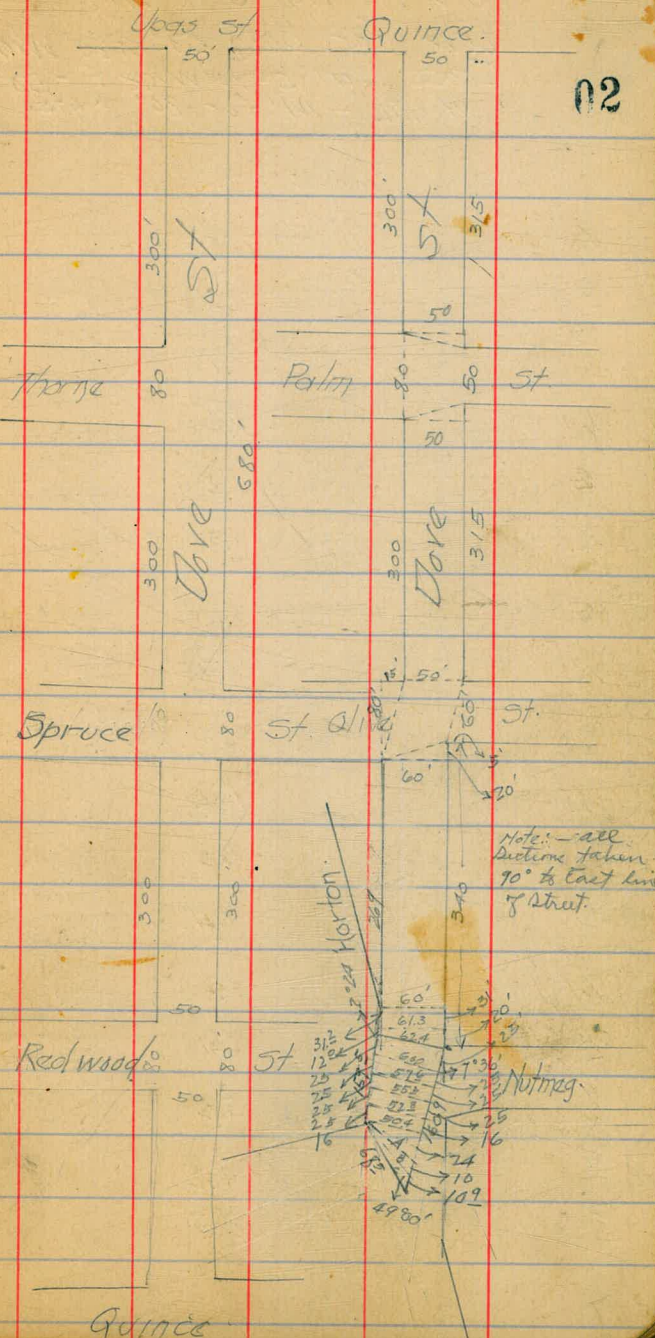 Upas St.
Quince.
02
50'
50
300'
St
300'
St
315
50
Thorne
80
Palm
80
50
St.
50
680'
300
Dove
300
Dove
315
50'
Spruce
80
St.
80'
60'
St.
60'
20'
Note:- all
Sections taken
90° to East line
of Street.
300
300'
Horton.
269
340
50
60'
61.3
62.4
20'
Redwood
80
80
St
Nutmeg.
50
31.2
12
25
25
25
25
16
57.5
55.2
52.3
50.4
25
16
24
10
10.9
49.80'
Quince